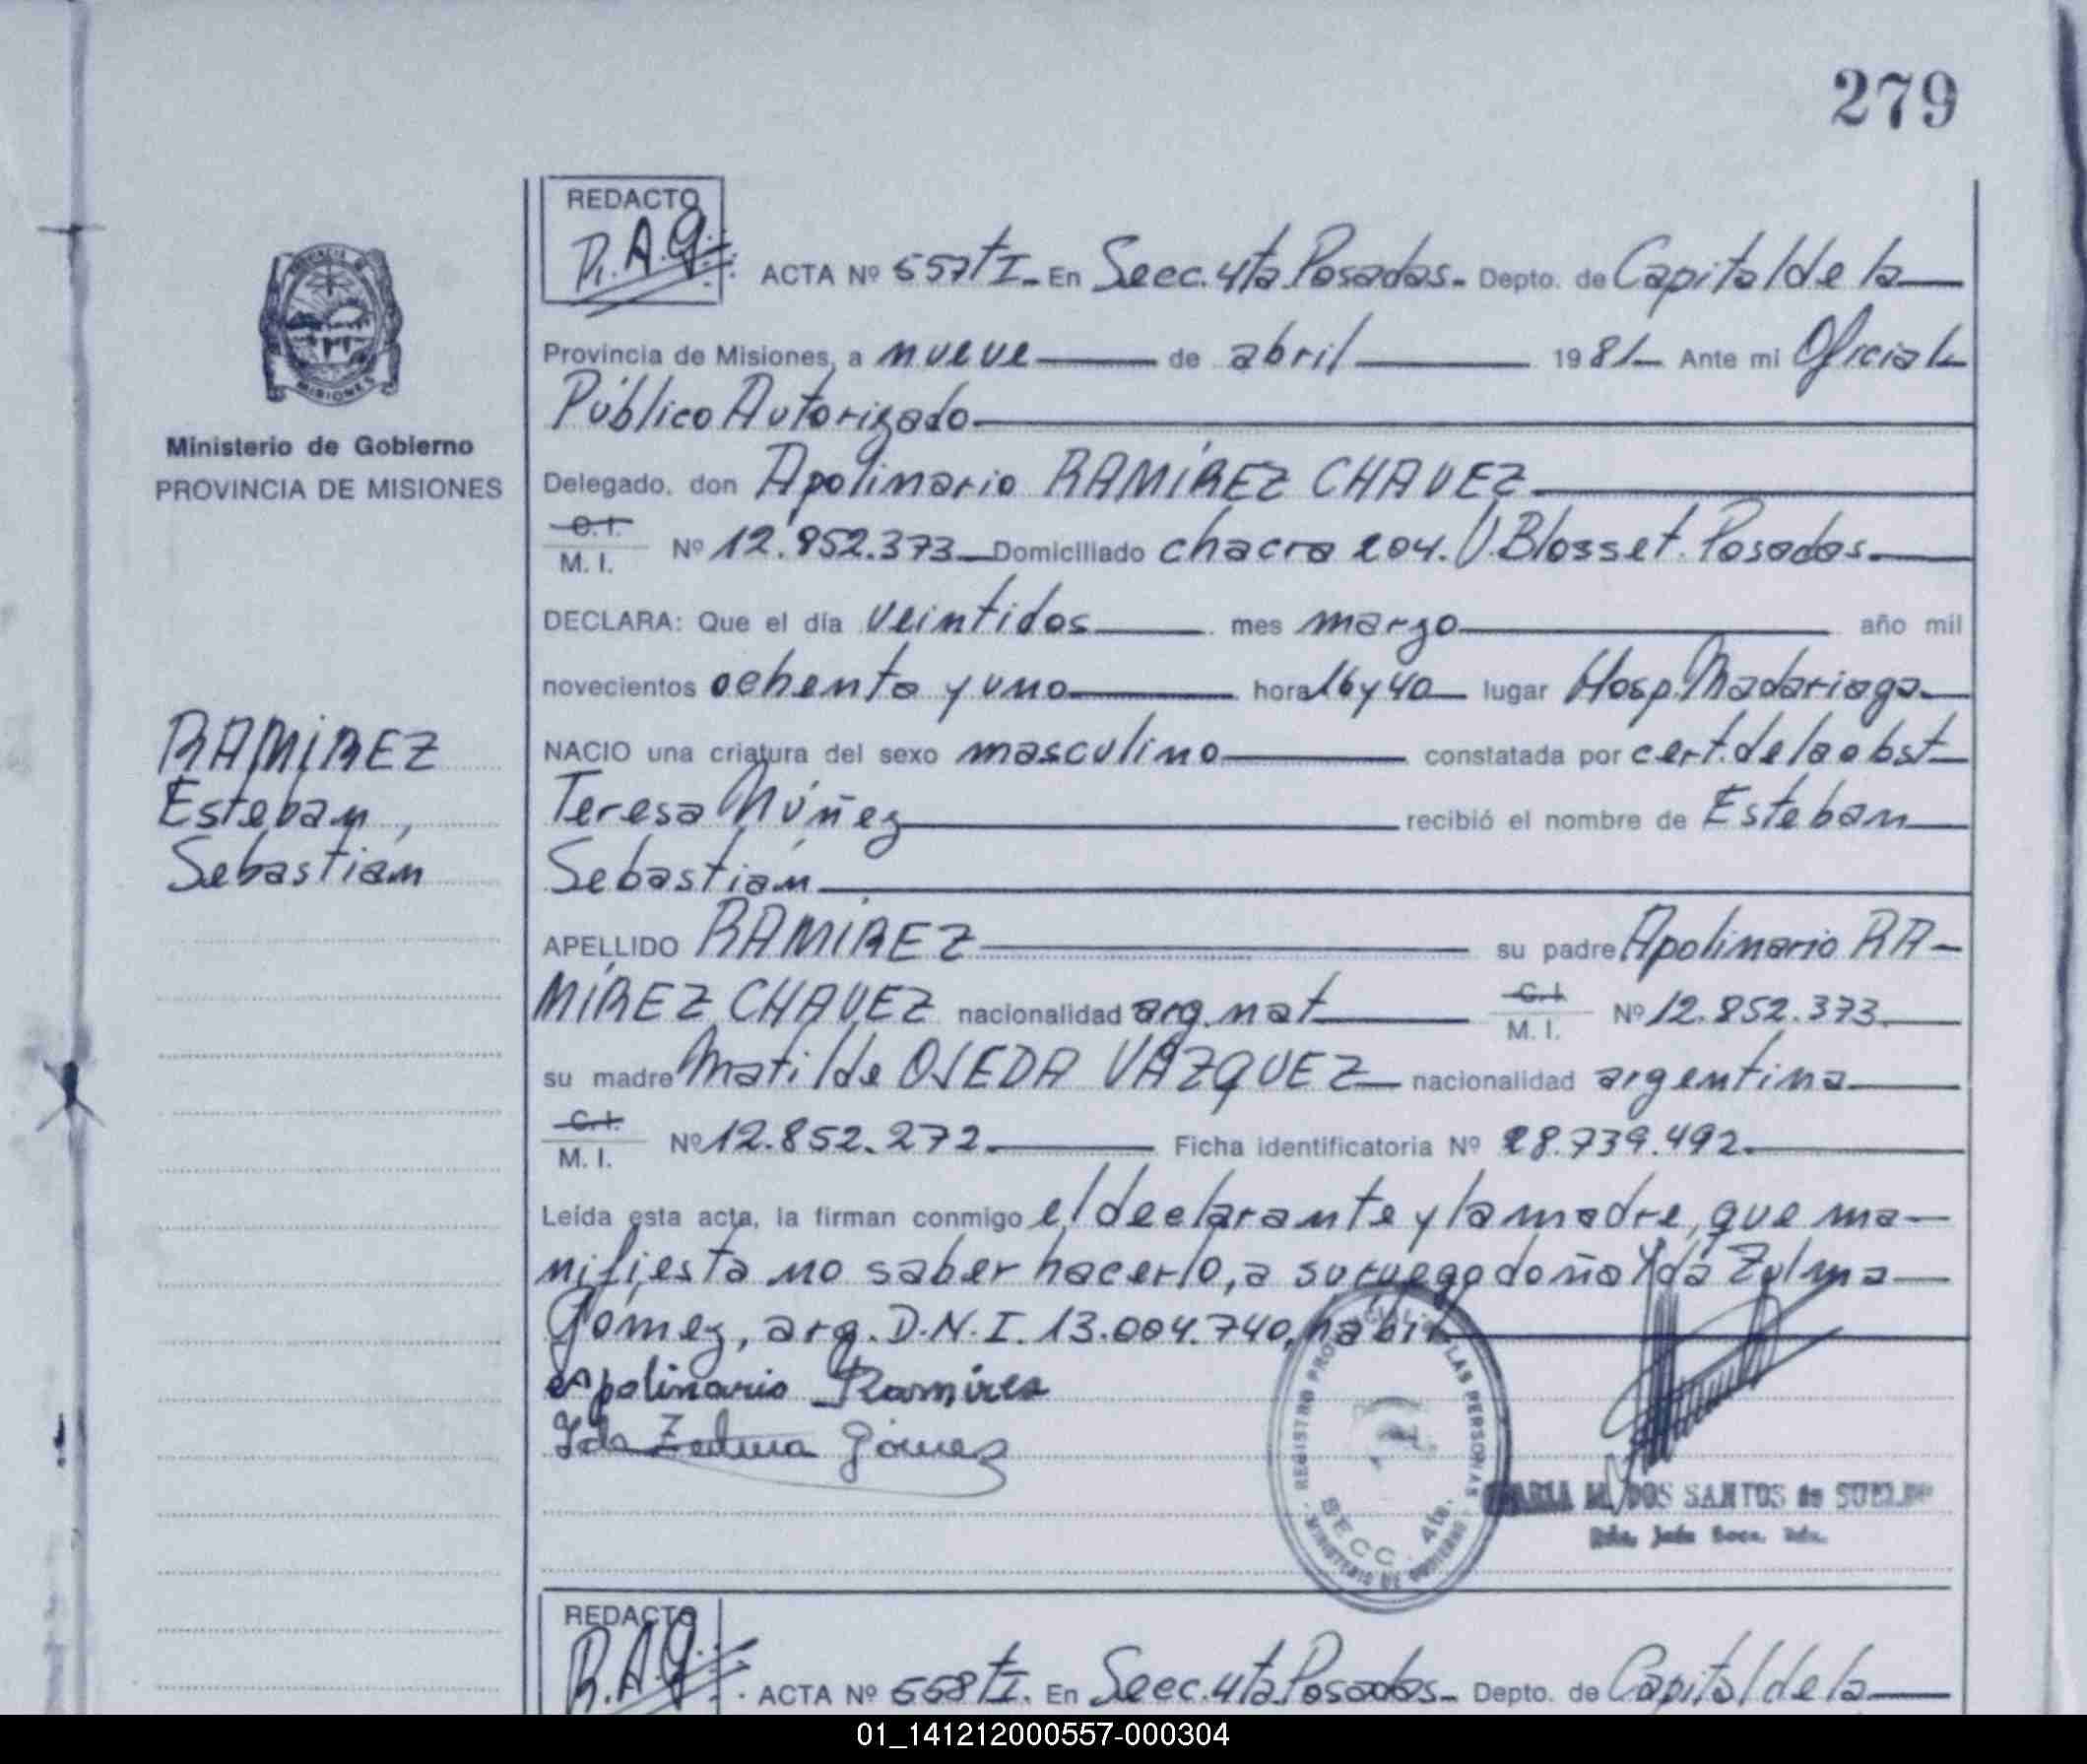 279
REDACTO
ACTA Nº 557 tº I. En Secc. 4ta Posadas. Depto. de Capital de la
Provincia de Misiones, a nueve de abril 1981 Ante mi Oficial
Público Autorizado
Ministerio de Gobierno
PROVINCIA DE MISIONES
Delegado, don Apolinario RAMÍREZ CHAVEZ
C. I.
M. I. Nº 12.852.373 Domiciliado chacra 204. V. Blosset. Posadas.
DECLARA: Que el día veintidos mes marzo año mil
novecientos ochenta y uno hora 16 y 40 lugar Hosp. Madariaga
RAMÍREZ
Esteban
Sebastián
NACIO una criatura del sexo masculino constatada por cert. de la obst
Teresa Núñez recibió el nombre de Esteban
Sebastián
APELLIDO RAMÍREZ su padre Apolinario RA-
MÍREZ CHAVEZ nacionalidad arg. nat C. I. M. I. Nº 12.852.373
su madre Matilde OJEDA VÁZQUEZ nacionalidad argentina
C. I.
M. I. Nº 12.852.272. Ficha identificatoria Nº 28.739.492.
Leída esta acta, la firman conmigo el declarante y la madre, que ma-
nifiesta no saber hacerlo, a su ruego doña Yda Zulma
Gómez, arg. D.N.I. 13.004.740, hábil
apolinario Ramires
Ida Zulma Gómez
REGISTRO PROVINCIAL DE LAS PERSONAS
SECC. 4ta.
MINISTERIO DE GOBIERNO
MARIA M. DOS SANTOS de
REDACTO
R.A.G.
ACTA Nº 558 tº I. En Secc. 4ta Posadas. Depto. de Capital de la
01_141212000557-000304